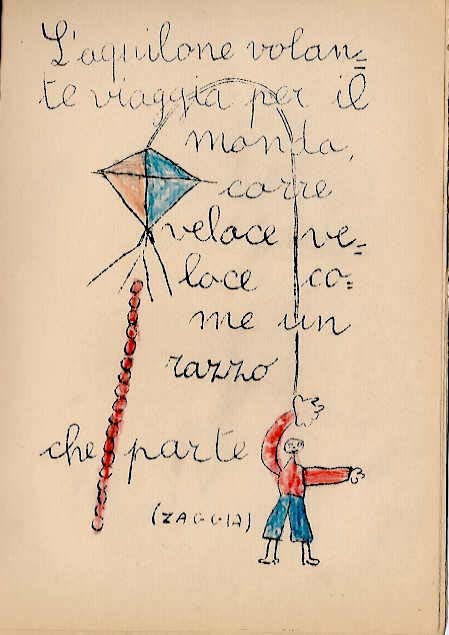 L'aquilone volan=
te viaggia per il
mondo,
corre
veloce ve=
loce co=
me un
razzo
che parte
(ZAGGIA)